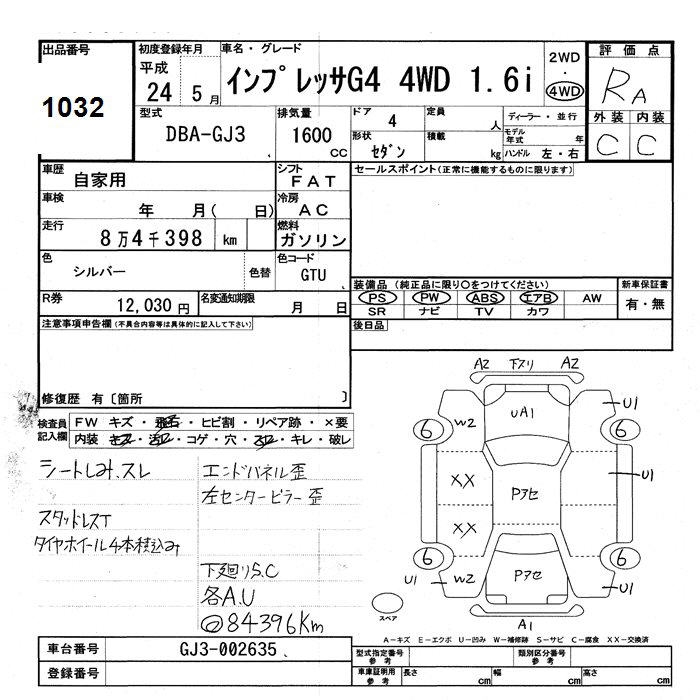 出品番号 初度登録年月 車名・グレード 2WD 評価点
1032 平成 24 5月 インプレッサG4 4WD 1.6i ・ 4WD RA
型式 排気量 ドア 4 定員 人 ディーラー・並行 外装 内装
DBA-GJ3 1600 CC 形状 セダン 積載 kg モデル年式 年 C C
ハンドル 左・右
車歴 自家用 シフト FAT セールスポイント(正常に機能するものに限ります)
車検 年 月( 日) 冷房 AC
走行 8万4千398 km 燃料 ガソリン
色 シルバー 色替 色コード GTU 装備品 (純正品に限り○をつけてください) 新車保証書
R券 12,030円 名変通知期限 月 日 PS PW ABS エアB AW 有・無
SR ナビ TV カワ
注意事項申告欄(不具合内容等は具体的に記入して下さい) 後日品
修復歴 有〔箇所 〕
検査員記入欄 FW キズ・飛石・ヒビ割・リペア跡・×要
内装 キズ・汚れ・コゲ・穴・スレ・キレ・破レ
シートしみ、スレ エンドパネル歪
左センターピラー歪
スタッドレスT
タイヤホイール4本積込み
下廻りS.C
各A.U
◎84396Km
A2 下スリ A2
W2 UA1 U1
6 6
XX Pアセ U1
XX
6 6
U1 W2 Pアセ U1
スペア A1
A-キズ E-エクボ U-凹み W-補修跡 S-サビ C-腐食 XX-交換済
車台番号 GJ3-002635 型式指定番号 参考 類別区分番号 参考
登録番号 車庫証明用 参考 長さ cm 幅 cm 高さ cm